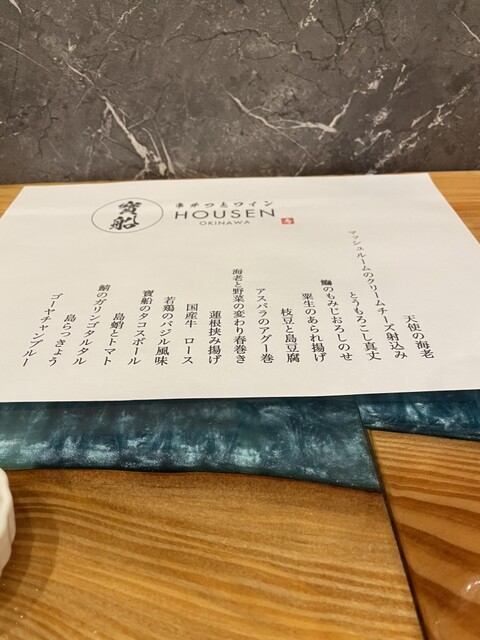 寶船
串かつとワイン
HOUSEN
OKINAWA
天使の海老
マッシュルームのクリームチーズ射込み
とうもろこし真丈
のもみじおろしのせ
粟生のあられ揚げ
枝豆と島豆腐
アスパラのアグー巻
海老と野菜の変わり春巻き
蓮根挟み揚げ
国産牛 ロース
若鶏のバジル風味
寶船のタコスボール
島蛸とトマト
鯖のガリンゴタルタル
島らっきょう
ゴーヤチャンプルー